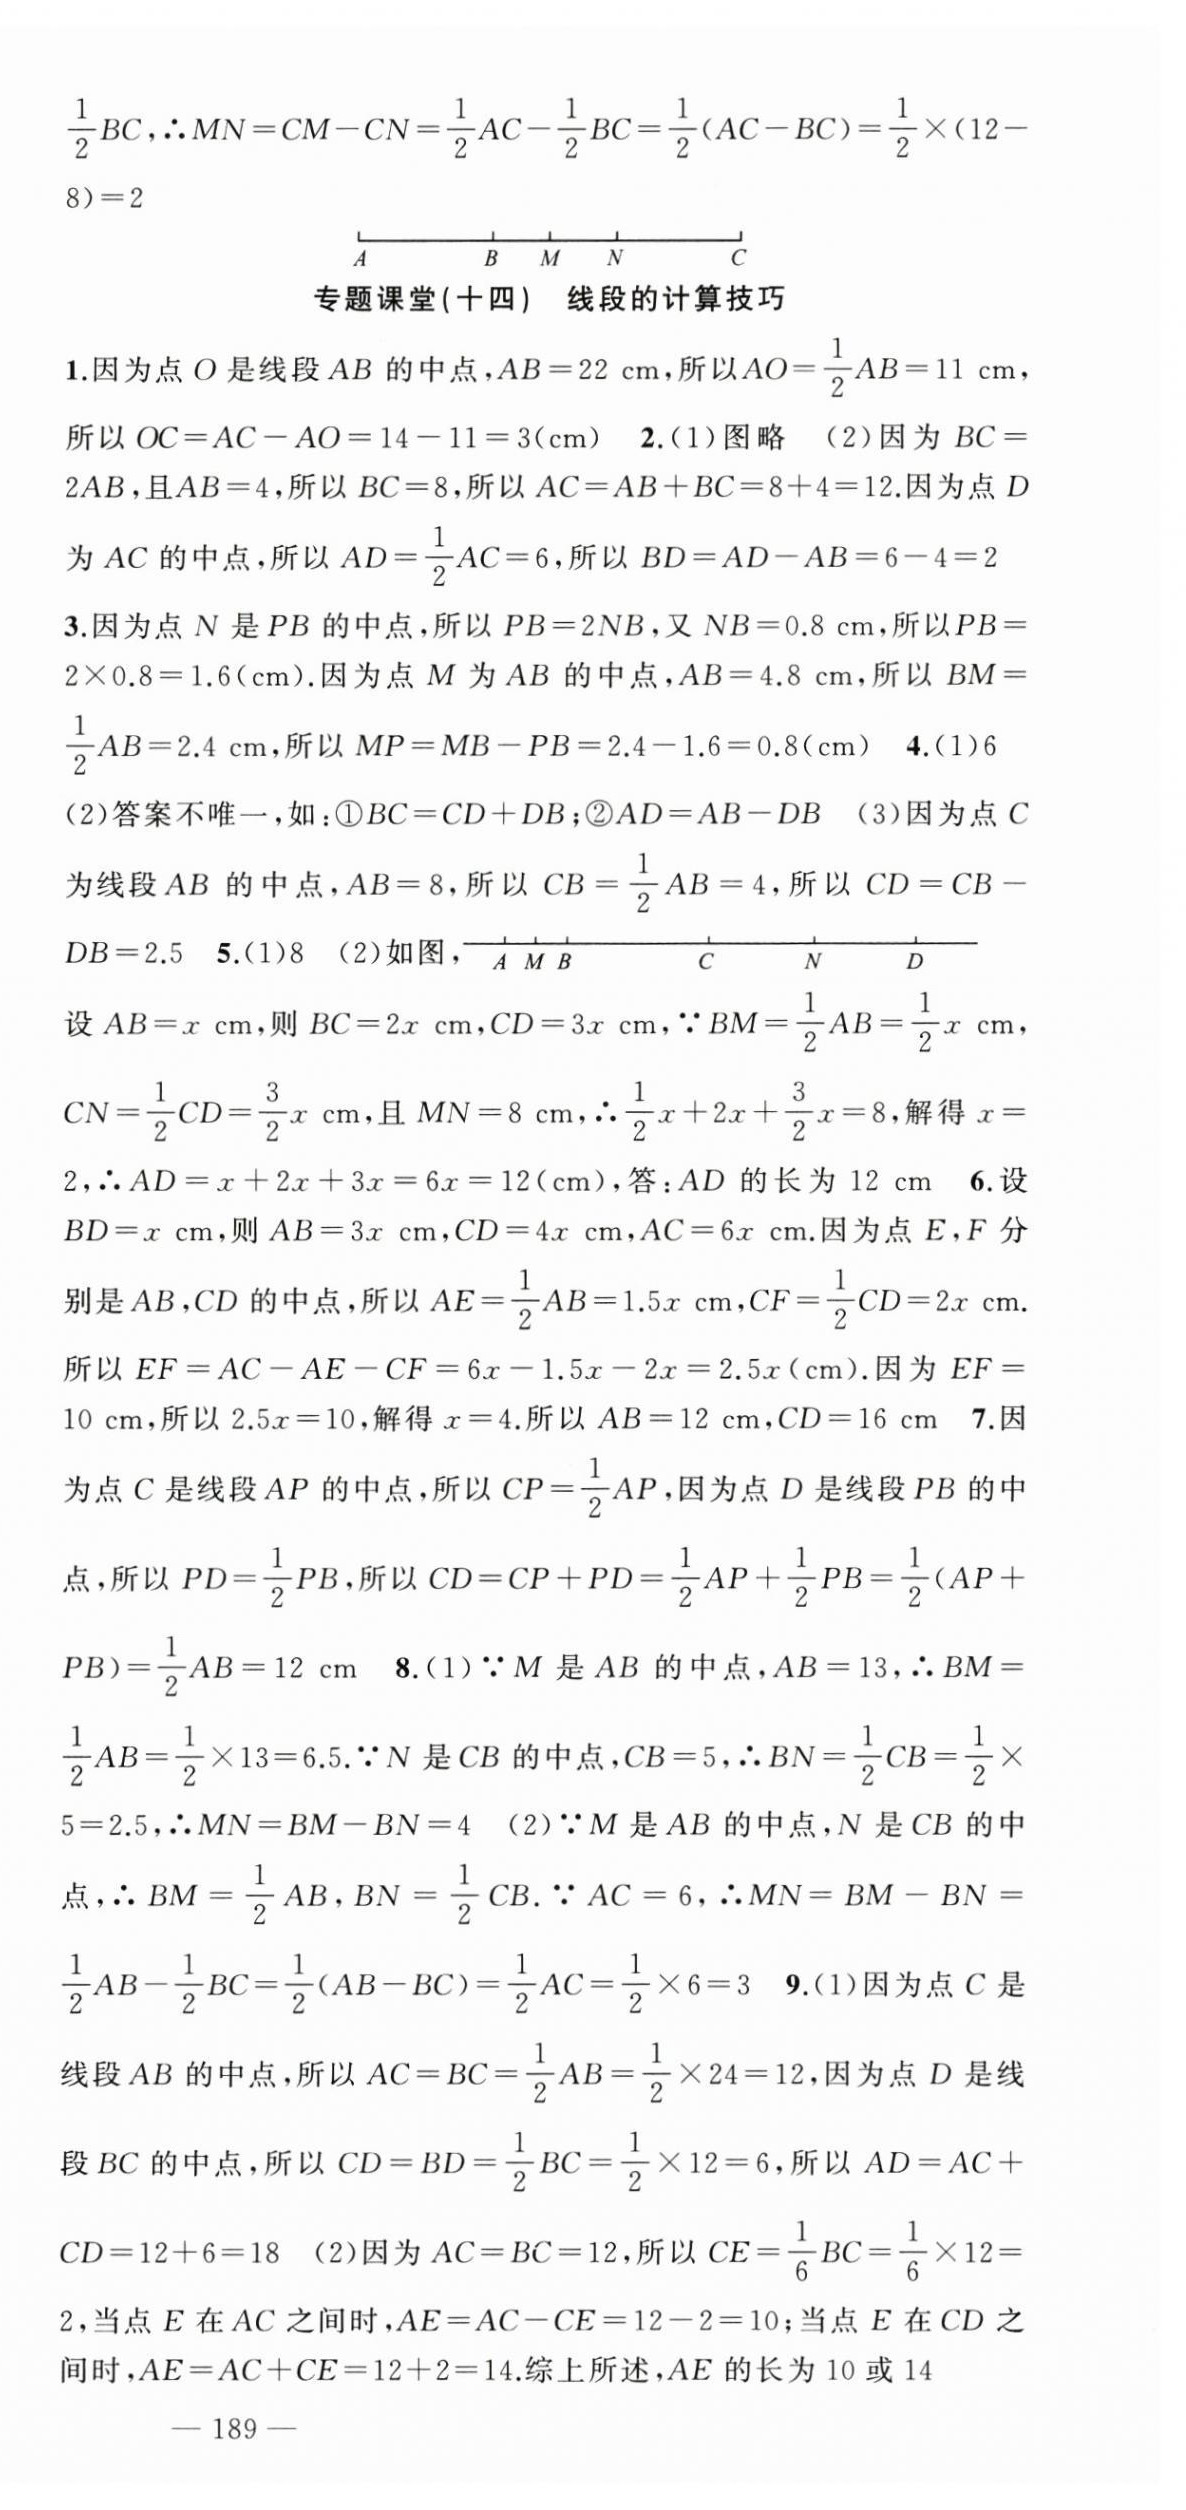 $\frac{1}{2}$BC,∴MN=CM−CN=$\frac{1}{2}$AC−$\frac{1}{2}$BC=$\frac{1}{2}$(AC−BC)=$\frac{1}{2}$×(12−
8)=2
A B M N C
专题课堂(十四) 线段的计算技巧
1.因为点 O 是线段 AB 的中点,AB=22 cm,所以AO=$\frac{1}{2}$AB=11 cm,
所以 OC=AC−AO=14−11=3(cm) 2.(1)图略 (2)因为 BC=
2AB,且AB=4,所以 BC=8,所以 AC=AB+BC=8+4=12.因为点 D
为 AC 的中点,所以 AD=$\frac{1}{2}$AC=6,所以 BD=AD−AB=6−4=2
3.因为点 N 是 PB 的中点,所以 PB=2NB,又 NB=0.8 cm,所以PB=
2×0.8=1.6(cm).因为点 M 为 AB 的中点,AB=4.8 cm,所以 BM=
$\frac{1}{2}$AB=2.4 cm,所以 MP=MB−PB=2.4−1.6=0.8(cm) 4.(1)6
(2)答案不唯一,如:①BC=CD+DB;②AD=AB−DB (3)因为点 C
为线段 AB 的中点,AB=8,所以 CB=$\frac{1}{2}$AB=4,所以 CD=CB−
DB=2.5 5.(1)8 (2)如图, A M B C N D
设 AB=x cm,则 BC=2x cm,CD=3x cm,∵BM=$\frac{1}{2}$AB=$\frac{1}{2}$x cm,
CN=$\frac{1}{2}$CD=$\frac{3}{2}$x cm,且 MN=8 cm,∴$\frac{1}{2}$x+2x+$\frac{3}{2}$x=8,解得 x=
2,∴AD=x+2x+3x=6x=12(cm),答:AD 的长为 12 cm 6.设
BD=x cm,则 AB=3x cm,CD=4x cm,AC=6x cm.因为点 E,F 分
别是 AB,CD 的中点,所以 AE=$\frac{1}{2}$AB=1.5x cm,CF=$\frac{1}{2}$CD=2x cm.
所以 EF=AC−AE−CF=6x−1.5x−2x=2.5x(cm).因为 EF=
10 cm,所以 2.5x=10,解得 x=4.所以 AB=12 cm,CD=16 cm 7.因
为点 C 是线段 AP 的中点,所以 CP=$\frac{1}{2}$AP,因为点 D 是线段 PB 的中
点,所以 PD=$\frac{1}{2}$PB,所以 CD=CP+PD=$\frac{1}{2}$AP+$\frac{1}{2}$PB=$\frac{1}{2}$(AP+
PB)=$\frac{1}{2}$AB=12 cm 8.(1)∵M 是 AB 的中点,AB=13,∴BM=
$\frac{1}{2}$AB=$\frac{1}{2}$×13=6.5.∵N 是 CB 的中点,CB=5,∴BN=$\frac{1}{2}$CB=$\frac{1}{2}$×
5=2.5,∴MN=BM−BN=4 (2)∵M 是 AB 的中点,N 是 CB 的中
点,∴BM=$\frac{1}{2}$AB,BN=$\frac{1}{2}$CB.∵AC=6,∴MN=BM−BN=
$\frac{1}{2}$AB−$\frac{1}{2}$BC=$\frac{1}{2}$(AB−BC)=$\frac{1}{2}$AC=$\frac{1}{2}$×6=3 9.(1)因为点 C 是
线段 AB 的中点,所以 AC=BC=$\frac{1}{2}$AB=$\frac{1}{2}$×24=12,因为点 D 是线
段 BC 的中点,所以 CD=BD=$\frac{1}{2}$BC=$\frac{1}{2}$×12=6,所以 AD=AC+
CD=12+6=18 (2)因为 AC=BC=12,所以 CE=$\frac{1}{6}$BC=$\frac{1}{6}$×12=
2,当点 E 在 AC 之间时,AE=AC−CE=12−2=10;当点 E 在 CD 之
间时,AE=AC+CE=12+2=14.综上所述,AE 的长为 10 或 14
— 189 —